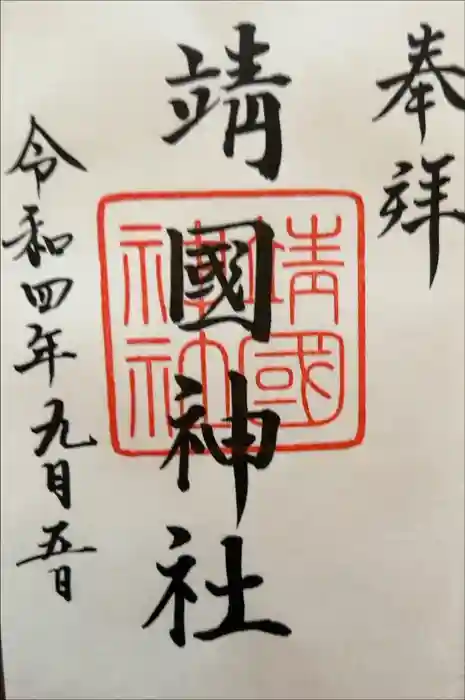 奉拝
靖國神社
靖國
神社
令和四年九月五日